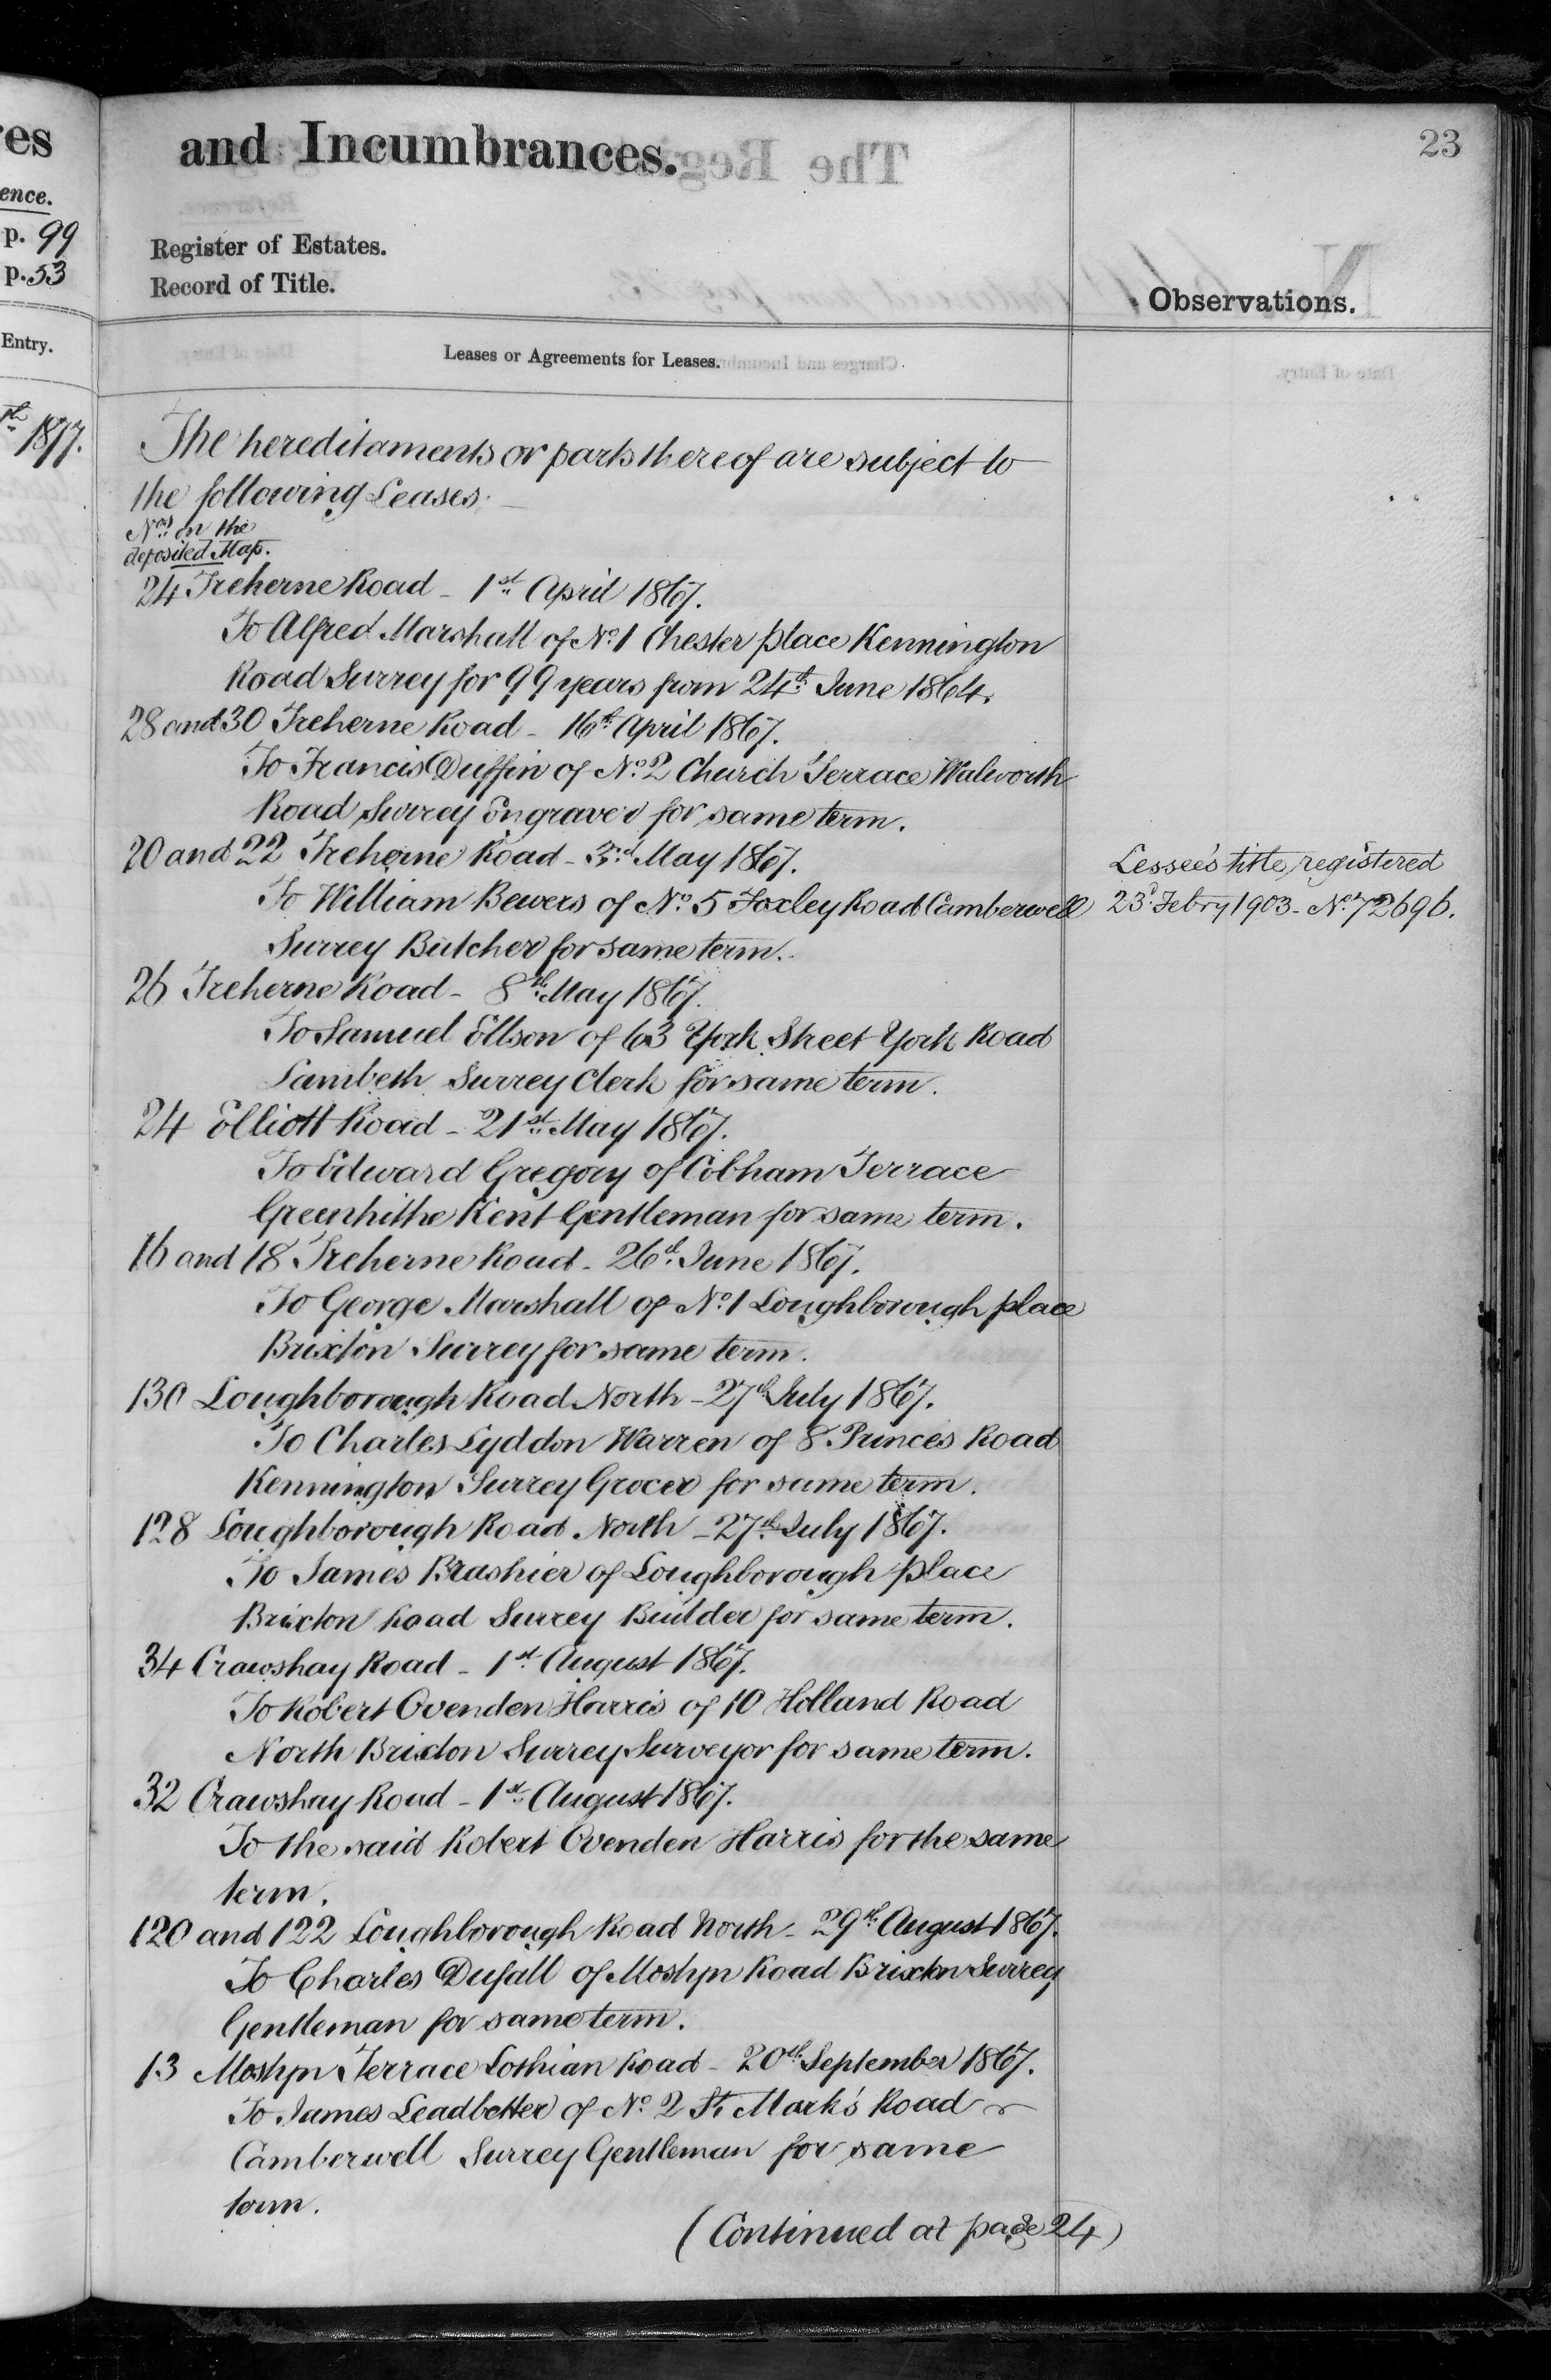 res
ence.
p. 99
p. 53
Entry.
1877.
and Incumbrances.
23
Register of Estates.
Record of Title.
Observations.
Leases or Agreements for Leases.
The hereditaments or parts thereof are subject to
the following Leases:—
Nos. on the
deposited Map.
24 Treherne Road - 1st April 1867.
To Alfred Marshall of No. 1 Chester place Kennington
Road Surrey for 99 years from 24th June 1864.
28 and 30 Treherne Road - 16th April 1867.
To Francis Duffin of No. 2 Church Terrace Walworth
Road Surrey Engraver for same term.
20 and 22 Treherne Road - 3rd May 1867.
To William Bewers of No. 5 Foxley Road Camberwell
Surrey Butcher for same term.
Lessee's title registered
23d Febry 1903 - No. 72696.
26 Treherne Road - 8th May 1867.
To Samuel Ellson of 63 York Street York Road
Lambeth Surrey Clerk for same term.
24 Elliott Road - 21st May 1867.
To Edward Gregory of Cobham Terrace
Greenhithe Kent Gentleman for same term.
16 and 18 Treherne Road - 26th June 1867.
To George Marshall of No. 1 Loughborough place
Brixton Surrey for same term.
130 Loughborough Road North - 27th July 1867.
To Charles Lyddon Warren of 8 Princes Road
Kennington Surrey Grocer for same term.
128 Loughborough Road North - 27th July 1867.
To James Brashier of Loughborough place
Brixton Road Surrey Builder for same term.
34 Crawshay Road - 1st August 1867.
To Robert Ovenden Harris of 10 Holland Road
North Brixton Surrey Surveyor for same term.
32 Crawshay Road - 1st August 1867.
To the said Robert Ovenden Harris for the same
term.
120 and 122 Loughborough Road North - 29th August 1867.
To Charles Dufall of Mostyn Road Brixton Surrey
Gentleman for same term.
13 Mostyn Terrace Lothian Road - 20th September 1867.
To James Leadbetter of No. 2 St. Mark's Road
Camberwell Surrey Gentleman for same
term.
(Continued at page 24)